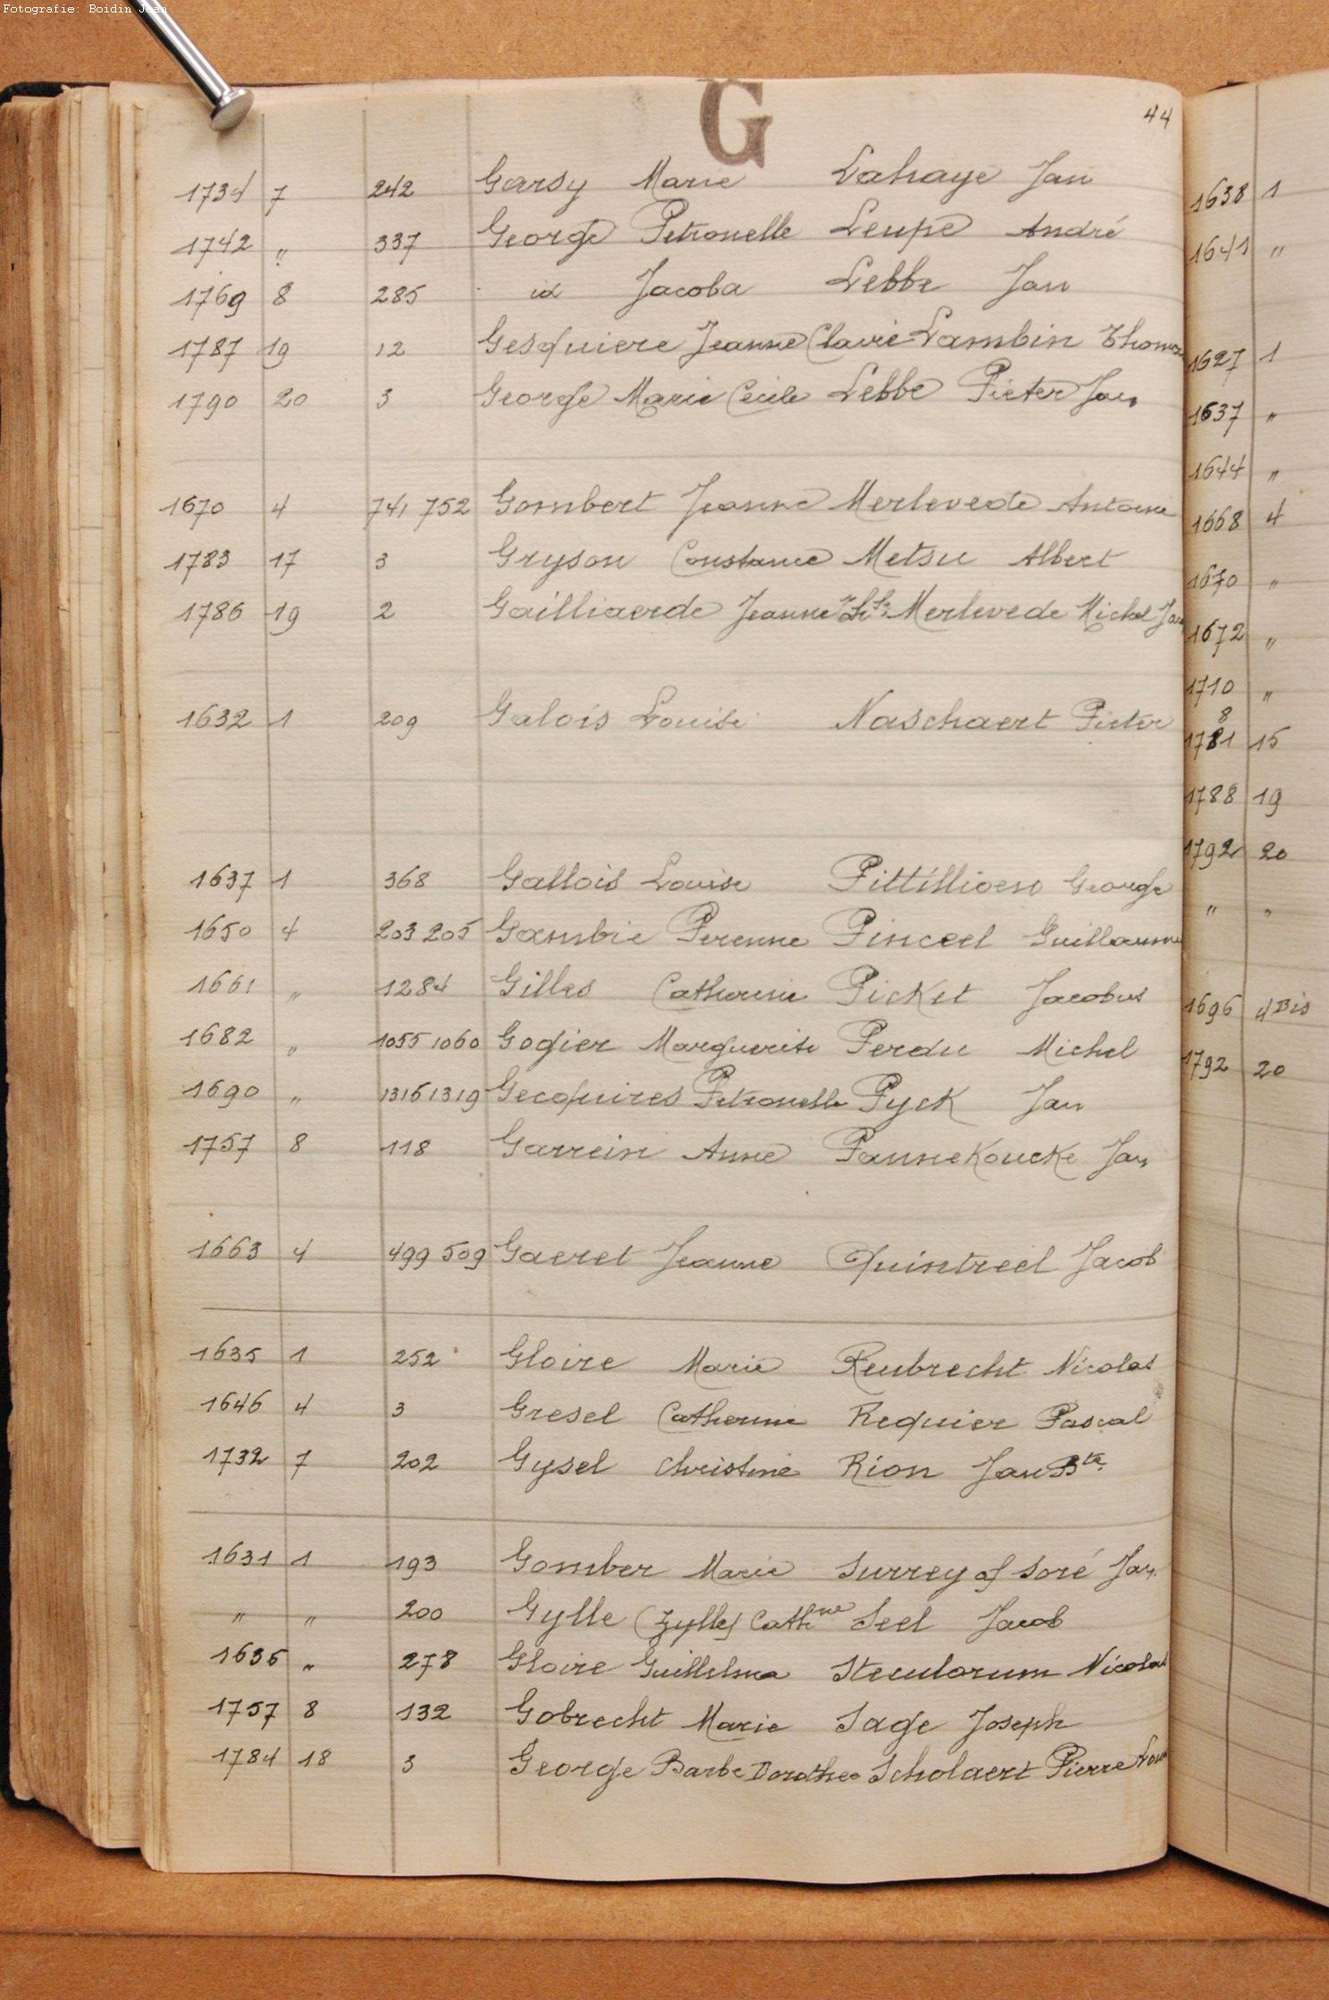 Fotografie: Boidin Jean
G
44
1734 7 242 Garsy Marie Lahaye Jan
1742 " 337 George Petronelle Leupe André
1769 8 285 id Jacoba Lebbe Jan
1787 19 12 Gesquiere Jeanne Claire Lambin Thomas
1790 20 3 George Marie Cecile Lebbe Pieter Jan
1670 4 741 752 Gombert Jeanne Merlevede Antoine
1783 17 3 Gryson Constance Metsu Albert
1786 19 2 Gailliaerde Jeanne Merlevede Michel Jan
1632 1 209 Galois Louise Naschaert Pieter
1637 1 368 Gallois Louise Pittillioen George
1650 4 203 205 Gambie Perenne Pinceel Guillaume
1661 " 1284 Gilles Catherine Picket Jacobus
1682 " 1055 1060 Gogier Marguerite Perdu Michel
1690 " 1316 1319 Gecquires Petronelle Pyck Jan
1757 8 118 Garrein Anne Pannekoucke Jan
1663 4 499 509 Gaeret Jeanne Quintreel Jacob
1635 1 252 Gloire Marie Reubrecht Nicolas
1646 4 3 Gresel Catherine Requier Pascal
1732 7 202 Gysel Christine Rion Jan Bte
1631 1 193 Gomber Marie Surrey of Soré Jan
" " 200 Gylle (Zylle) Cathne Seel Jacob
1636 " 278 Gloire Guillelma Steculorum Nicolas
1757 8 132 Gobrecht Marie Sage Joseph
1784 18 3 George Barbe Dorothee Scholaert Pierre Louis
1638 1
1641 "
1627 1
1637 "
1644 "
1668 4
1670 "
1672 "
1710 "
8
1781 15
1788 19
1792 20
" "
1696 4 Bis
1792 20